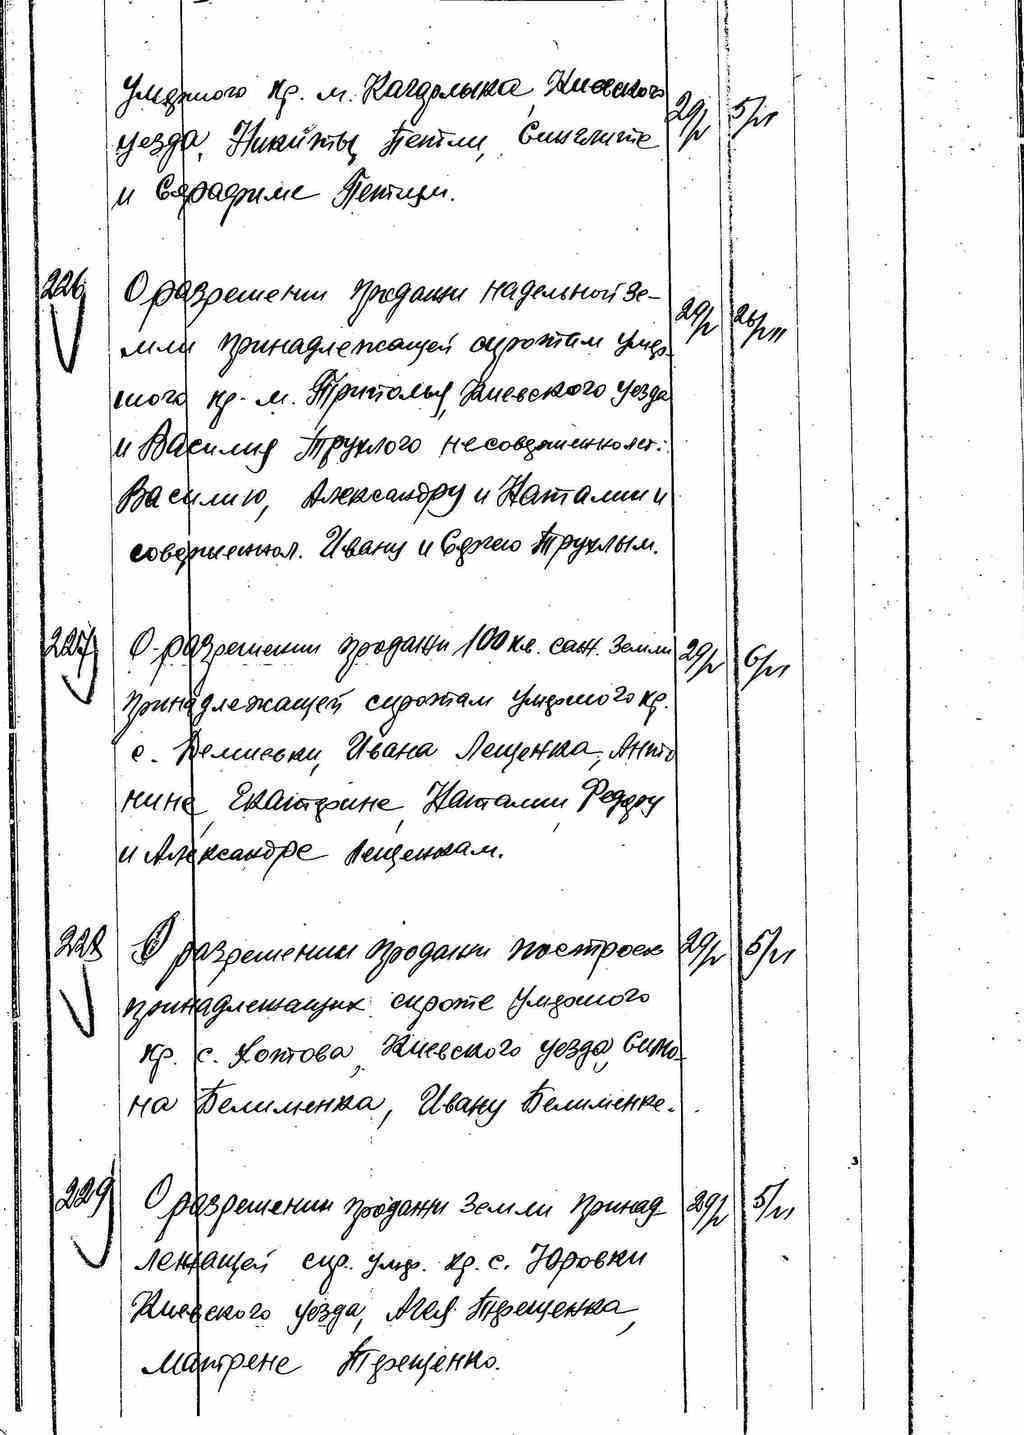 умершого кр. м. Кагарлыка, Киевского 29/V 5/VI
уезда, Никиты Петли, Синклите
и Серафиме Петлям.
226 О разрешении продажи надельной зе- 29/V 26/VII
мли принадлежащей сиротам умер-
шого кр. м. Триполья, Киевского уезда
и Василия Трухлого несовершеннолет:
Василию, Александру и Наталии и
совершеннол. Ивану и Сергею Трухлым.
227 О разрешении продажи 100 кв. саж. земли 29/V 6/VI
принадлежащей сиротам умершого кр.
с. Демиевки, Ивана Лещенка, Анто
нине, Екатерине, Наталии, Федору
и Александре Лещенкам.
228 О разрешении продажи построек 29/V 5/VI
принадлежащих сироте умершого
кр. с. Хотова, Киевского уезда, Симо-
на Белименка, Ивану Белименке.
229 О разрешении продажи земли принад 29/V 5/VI
лежащей сир. умер. кр. с. Юровки
Киевского уезда, Агея Терещенка,
Матрене Терещенко.